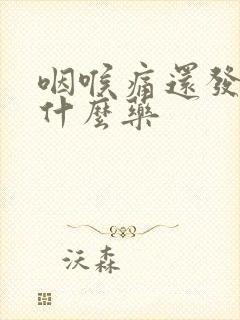 咽喉痛還發
什麼藥
沃森